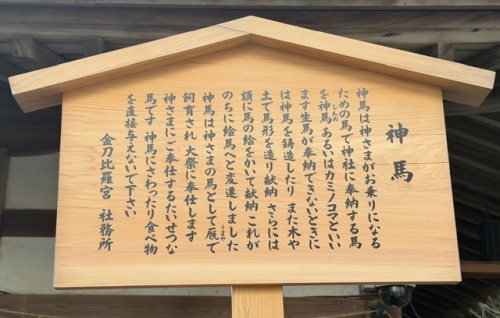 神馬
神馬は神さまがお乗りになる
ための馬で神社に奉納する馬
を神馬あるいはカミノコマといい
ます生馬が奉納できないときに
は神馬を鋳造したり また木や
土で馬形を造り献納 さらには
額に馬の絵をかいて献納 これが
のちに絵馬へと変遷しました
神馬は神さまの馬として厩で
飼育され 大祭に奉仕します
神さまにご奉仕するたいせつな
馬です 神馬にさわったり食べ物
を直接与えないで下さい
金刀比羅宮 社務所